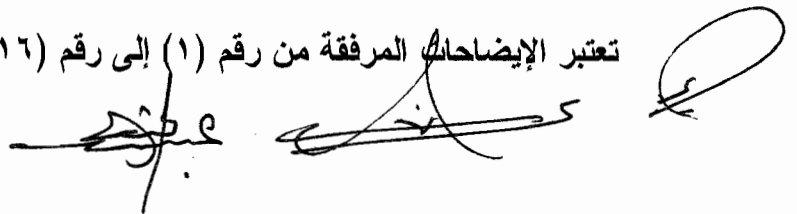 تعتبر الإيضاحات المرفقة من رقم (١) إلى رقم (١٦